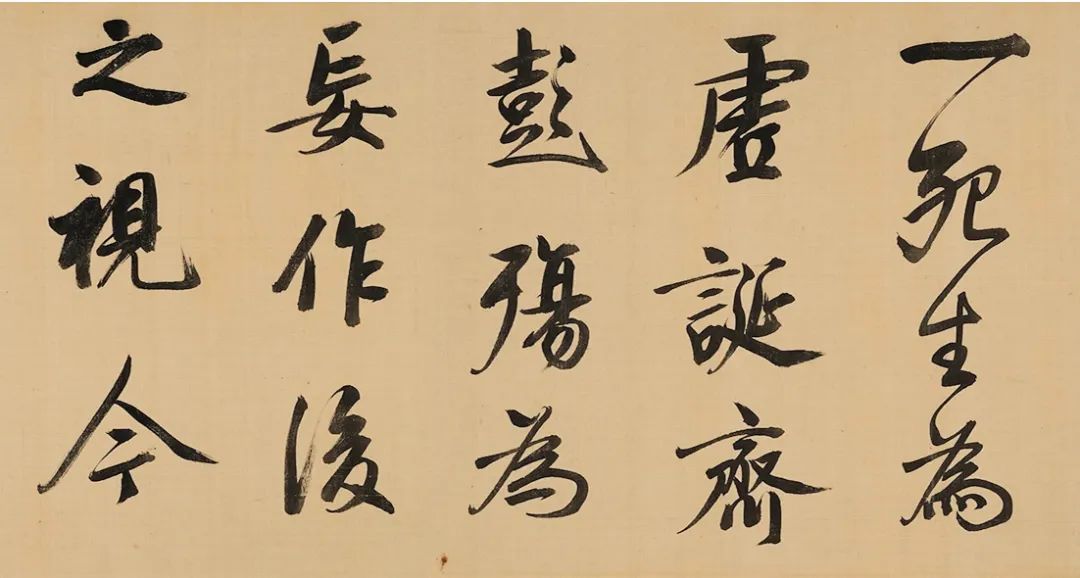 一死生為
虛誕齊
彭殤為
妄作後
之視今